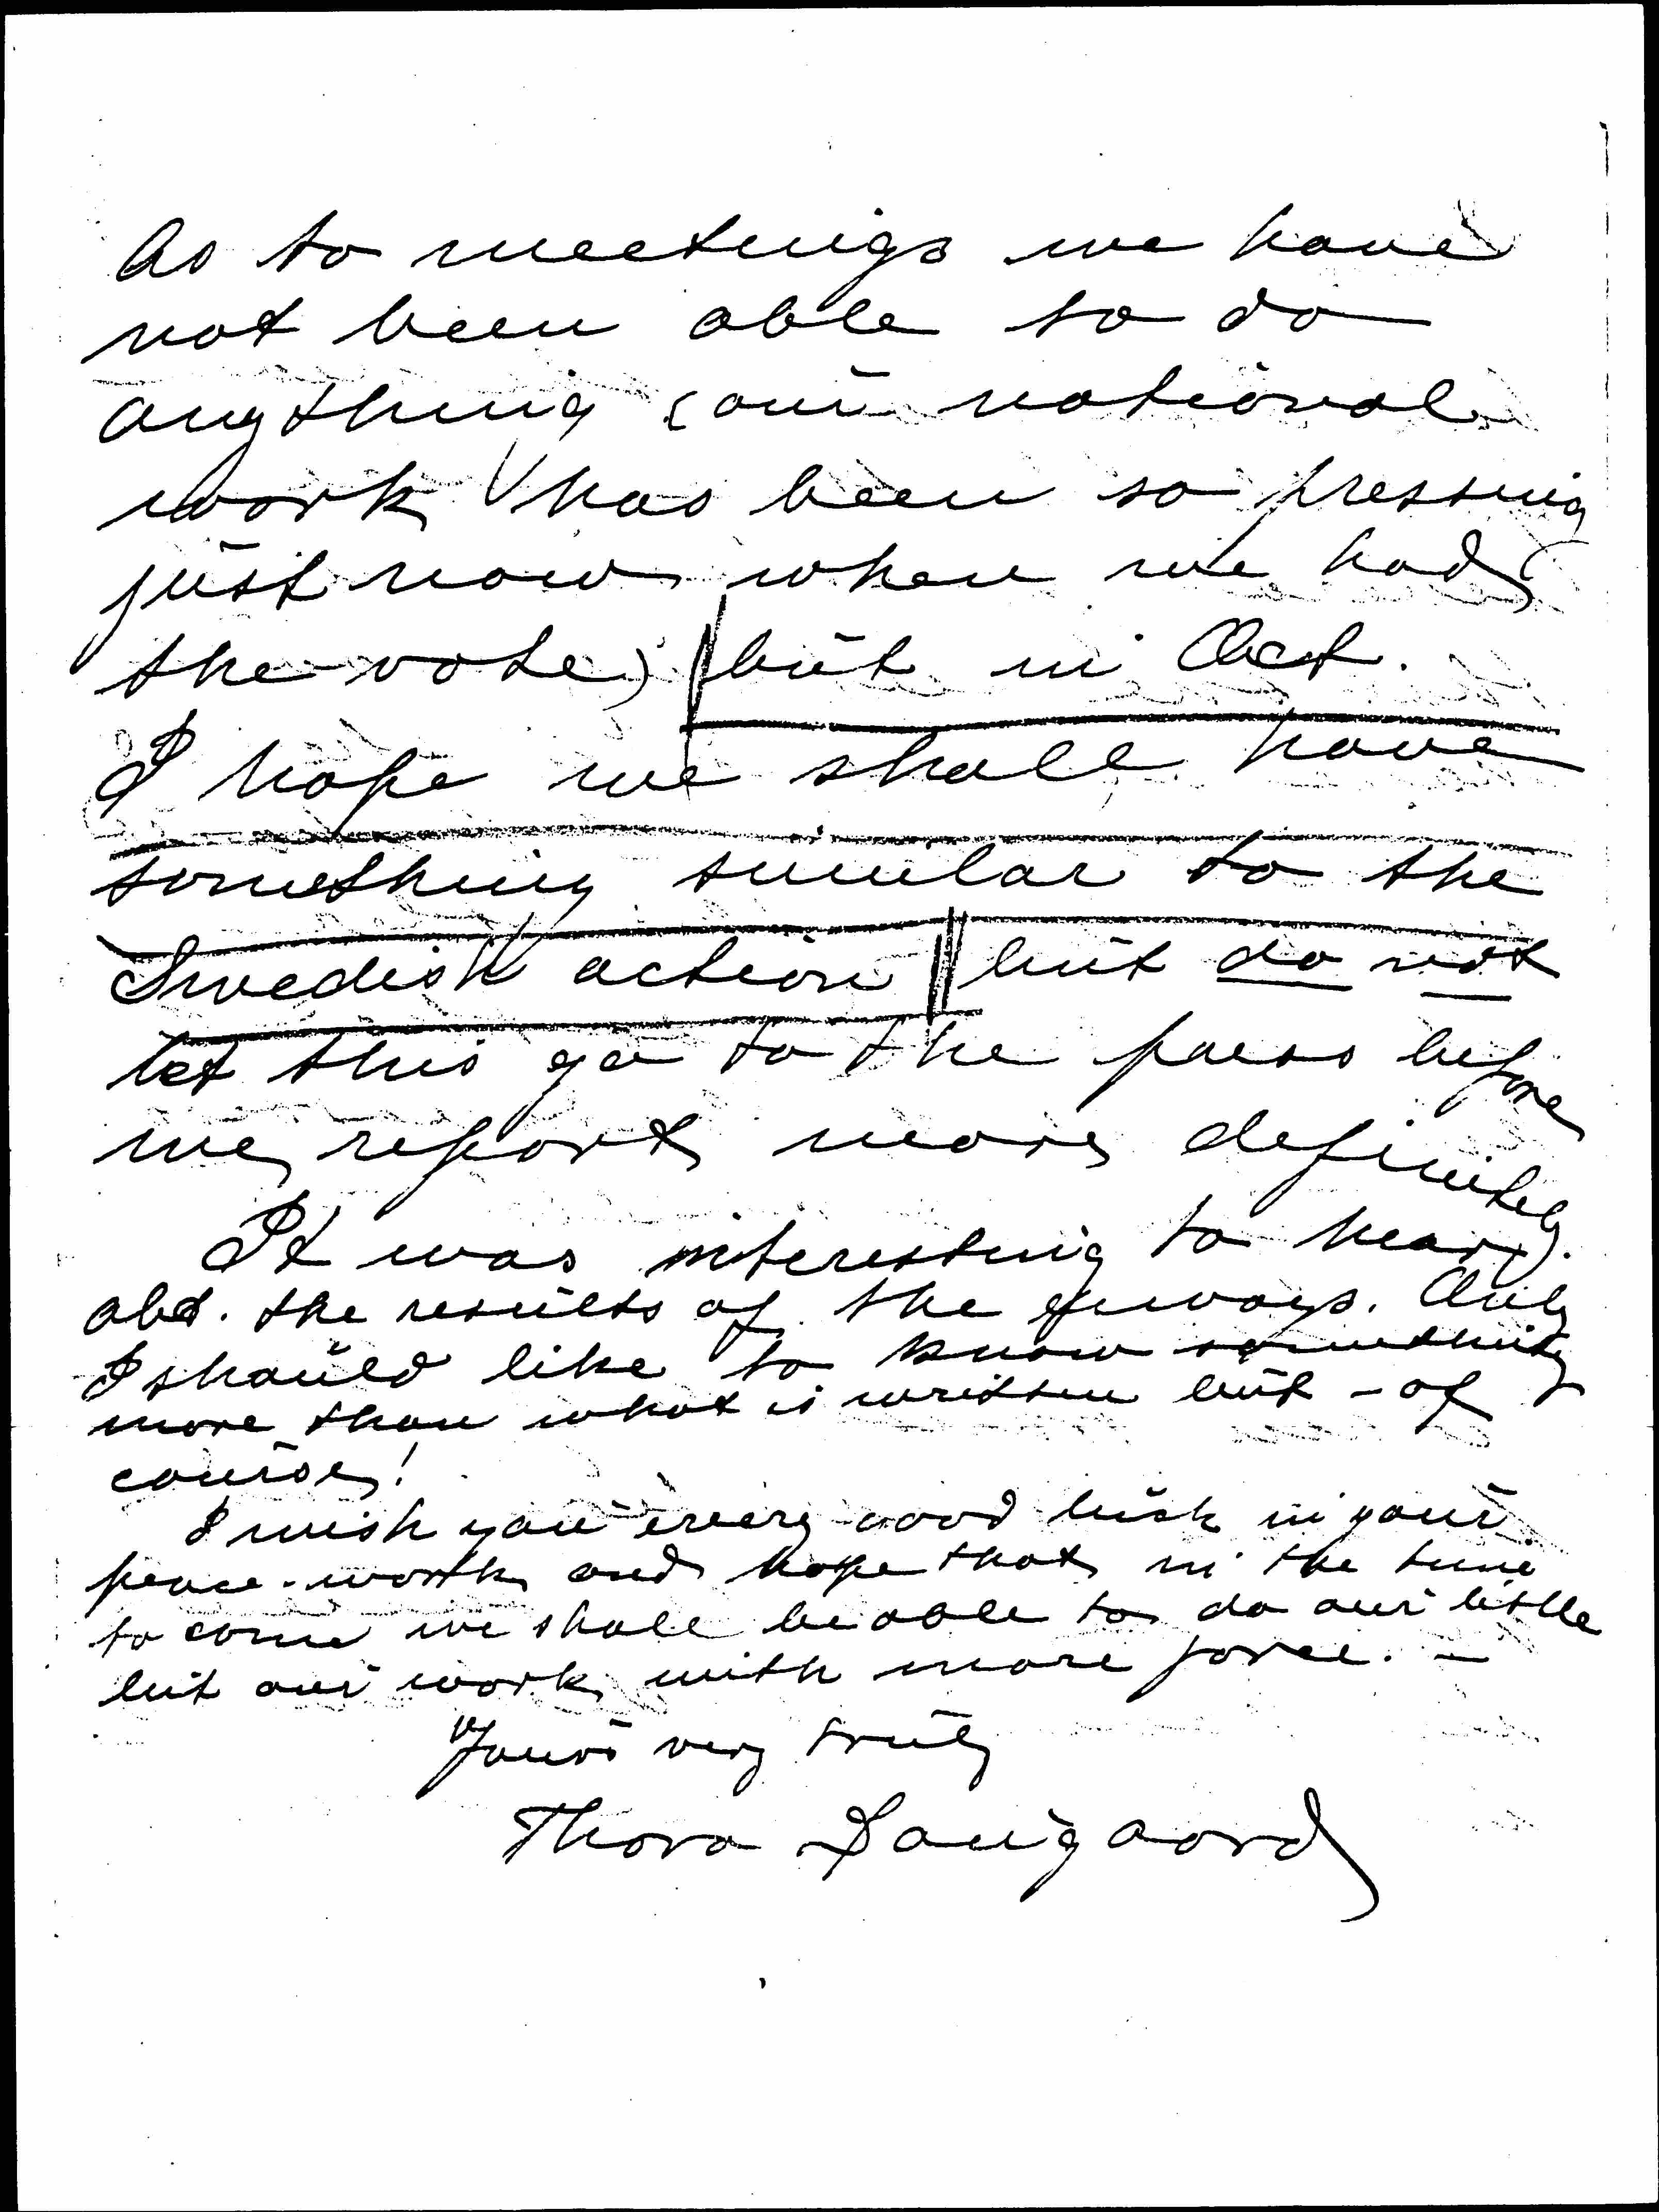 As to meetings we have
not been able to do
anything (our national
work has been so pressing
just now when we had
the vote) but in Oct.
I hope we shall have
something similar to the
Swedish action but do not
let this go to the press before
we report more definitely.
It was interesting to hear
abt. the results of the envoys. Only
I should like to know something
more than what is written but - of
course!
I wish you every good luck in your
peace-work and hope that in the time
to come we shall be able to do our little
bit our work with more force. -
Yours very truly
Thora Daugaard